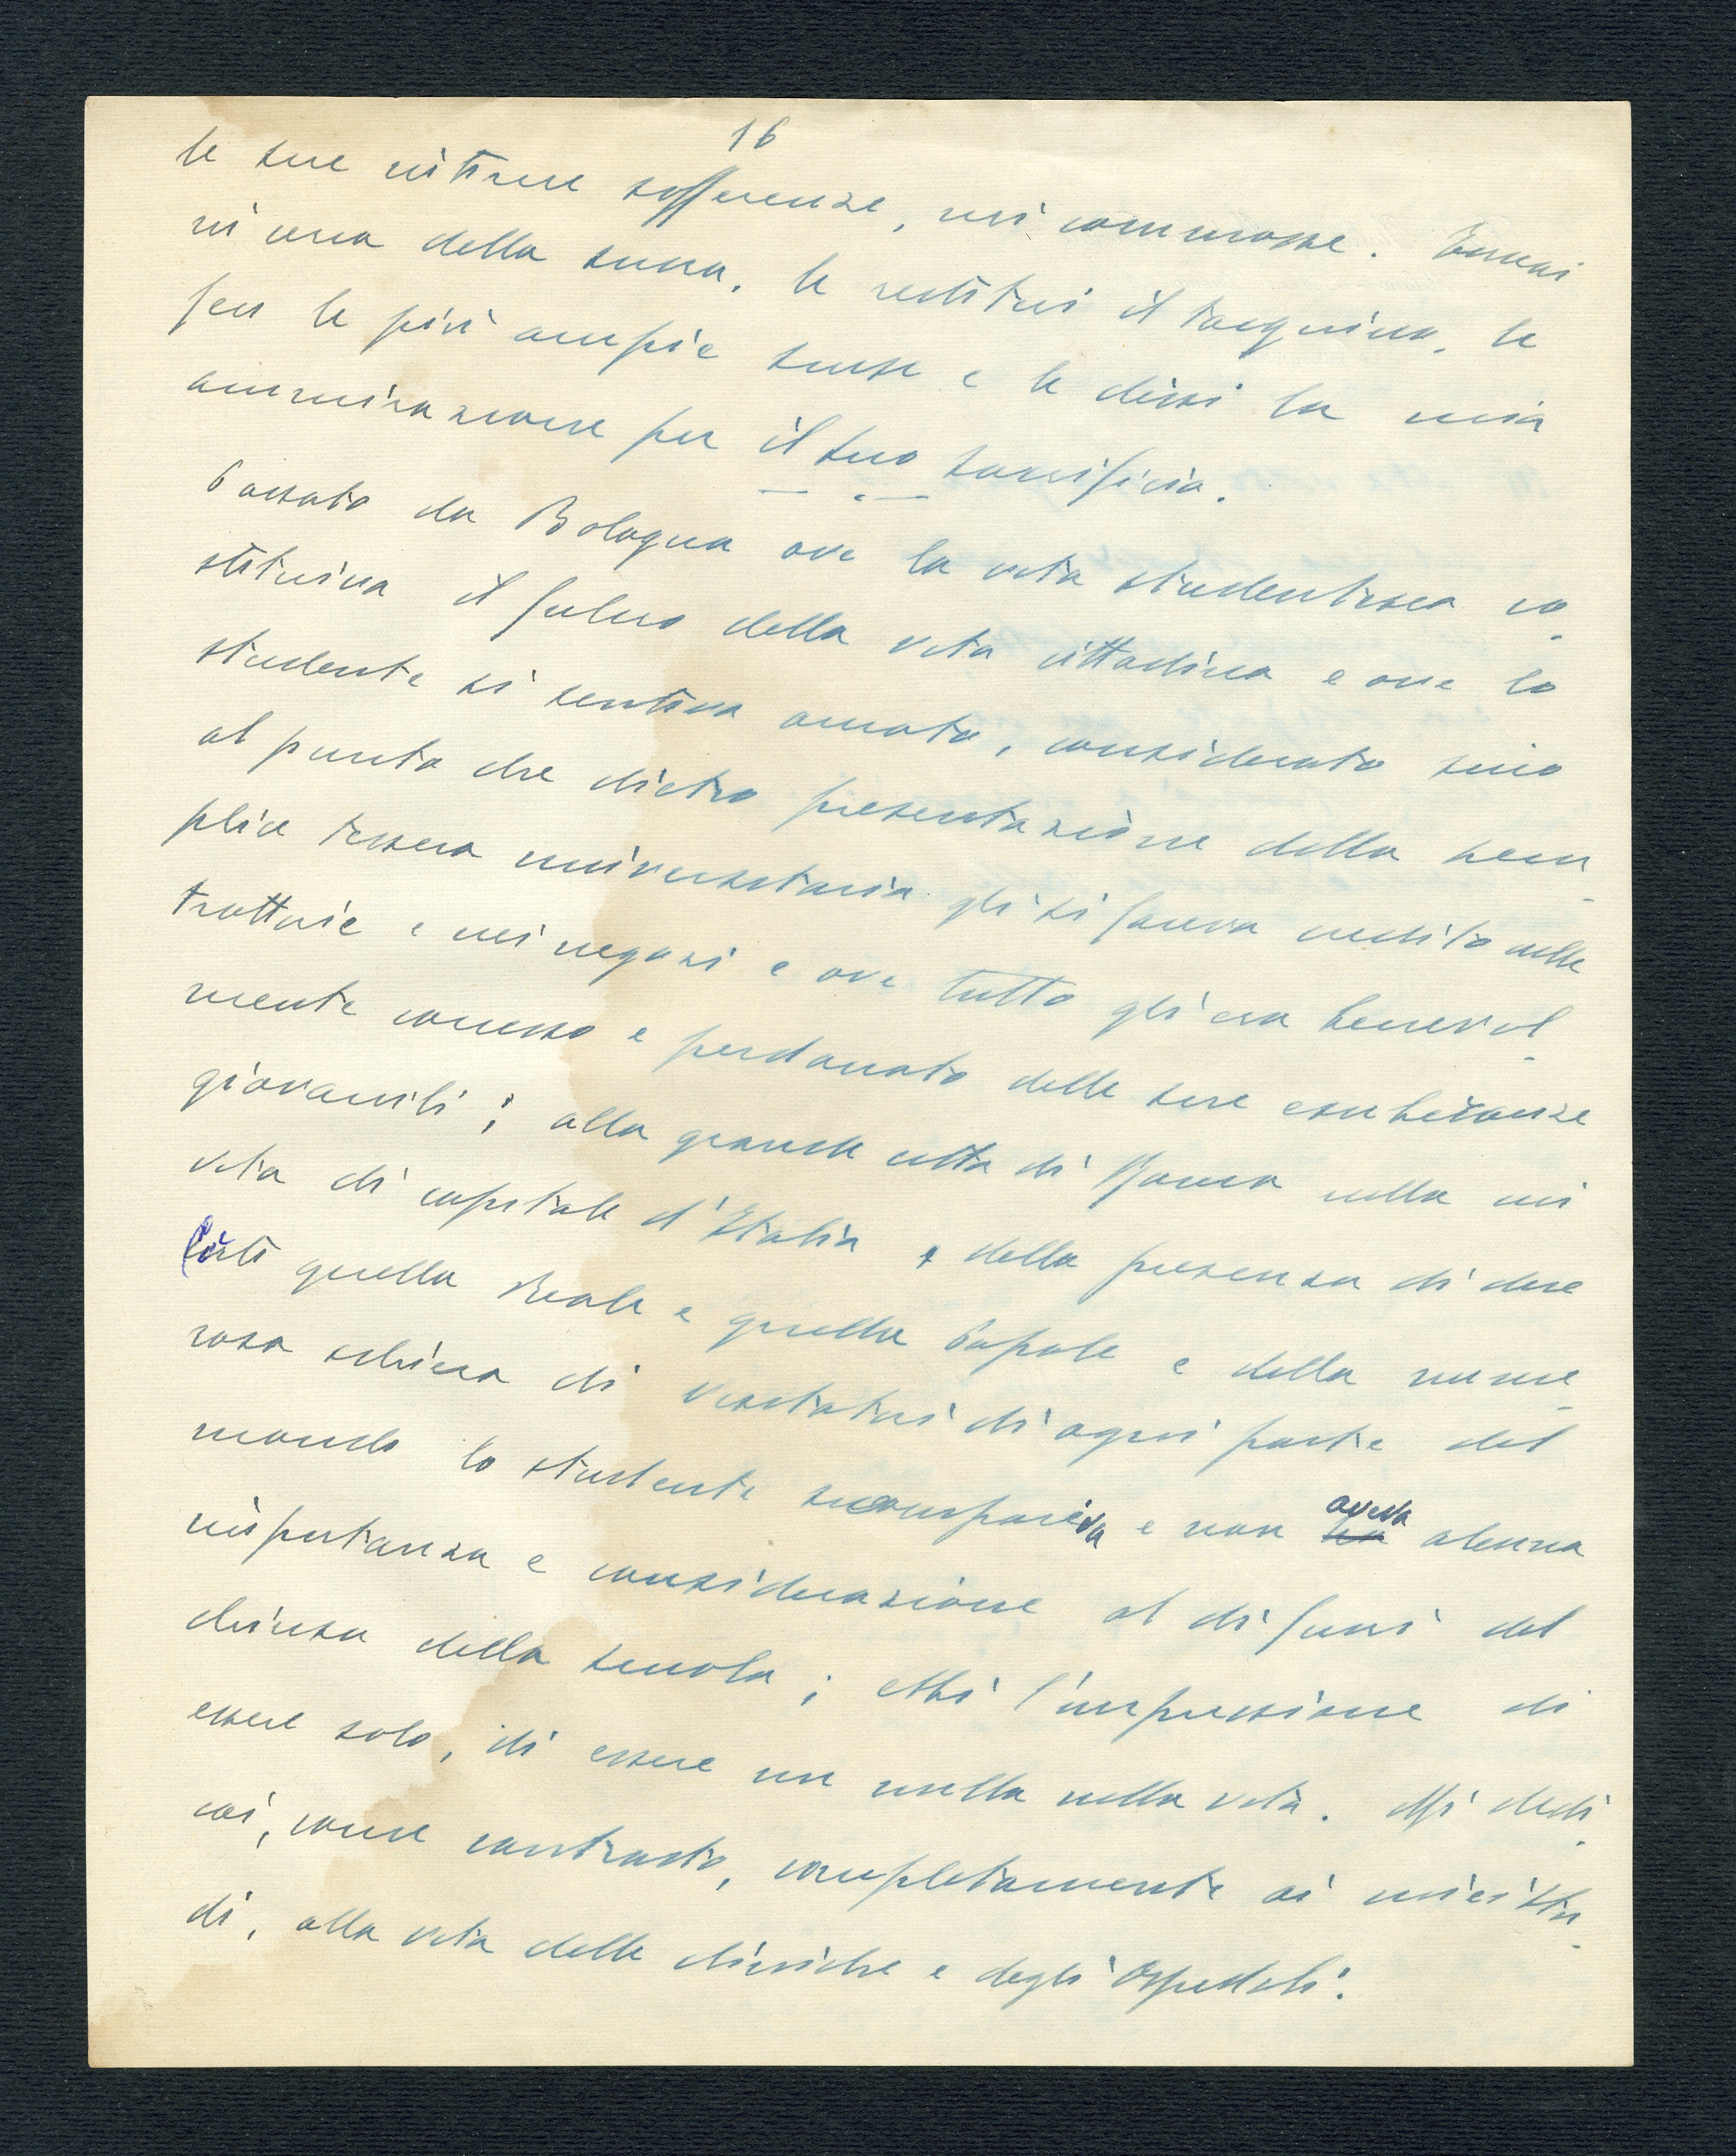 16
le sue intime sofferenze, mi commosse. Tornai
in cerca della suora, le restituii il taccuino, le
feci le più ampie scuse e le dissi la mia
ammirazione per il suo sacrificio.
Passato da Bologna ove la vita studentesca co-
stituiva il fulcro della vita cittadina e ove lo
studente si sentiva amato, considerato sino
al punto che dietro presentazione della sem-
plice tessera universitaria gli si faceva credito nelle
trattorie e nei negozi e ove tutto gli era benevol-
mente concesso e perdonato delle sue esuberanze
giovanili; alla grande città di Roma nella
vita di capitale d'Italia e della presenza di due
Corti quella Reale e quella Papale e della nume-
rosa schiera di visitatori di ogni parte del
mondo lo studente scompariva e non ha aveva alcuna
importanza e considerazione al di fuori del
chiuso della scuola; ebbi l'impressione di
essere solo, di essere un nulla nella vita. Mi dedi-
cai, come contrasto, completamente ai miei stu-
di, alla vita delle cliniche e degli Ospedali.